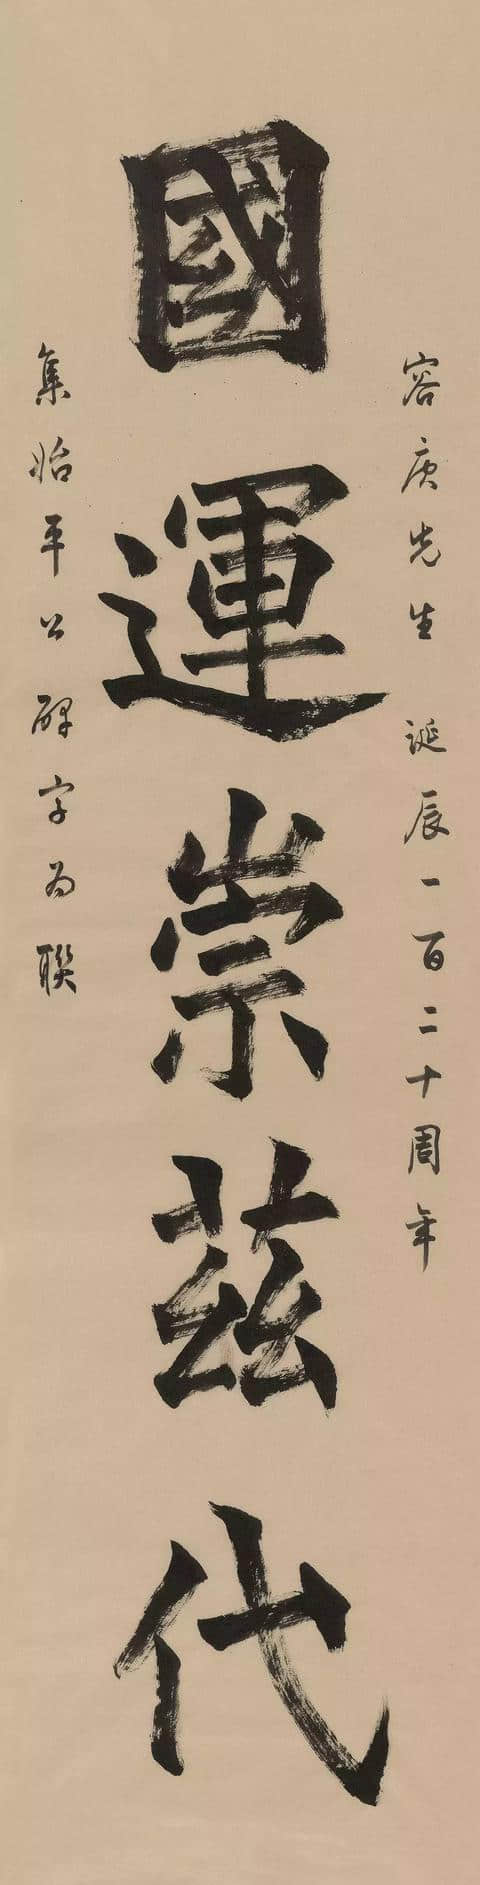 容庚先生 誕辰一百二十周年
國運崇茲代
集始平公碑字為聯